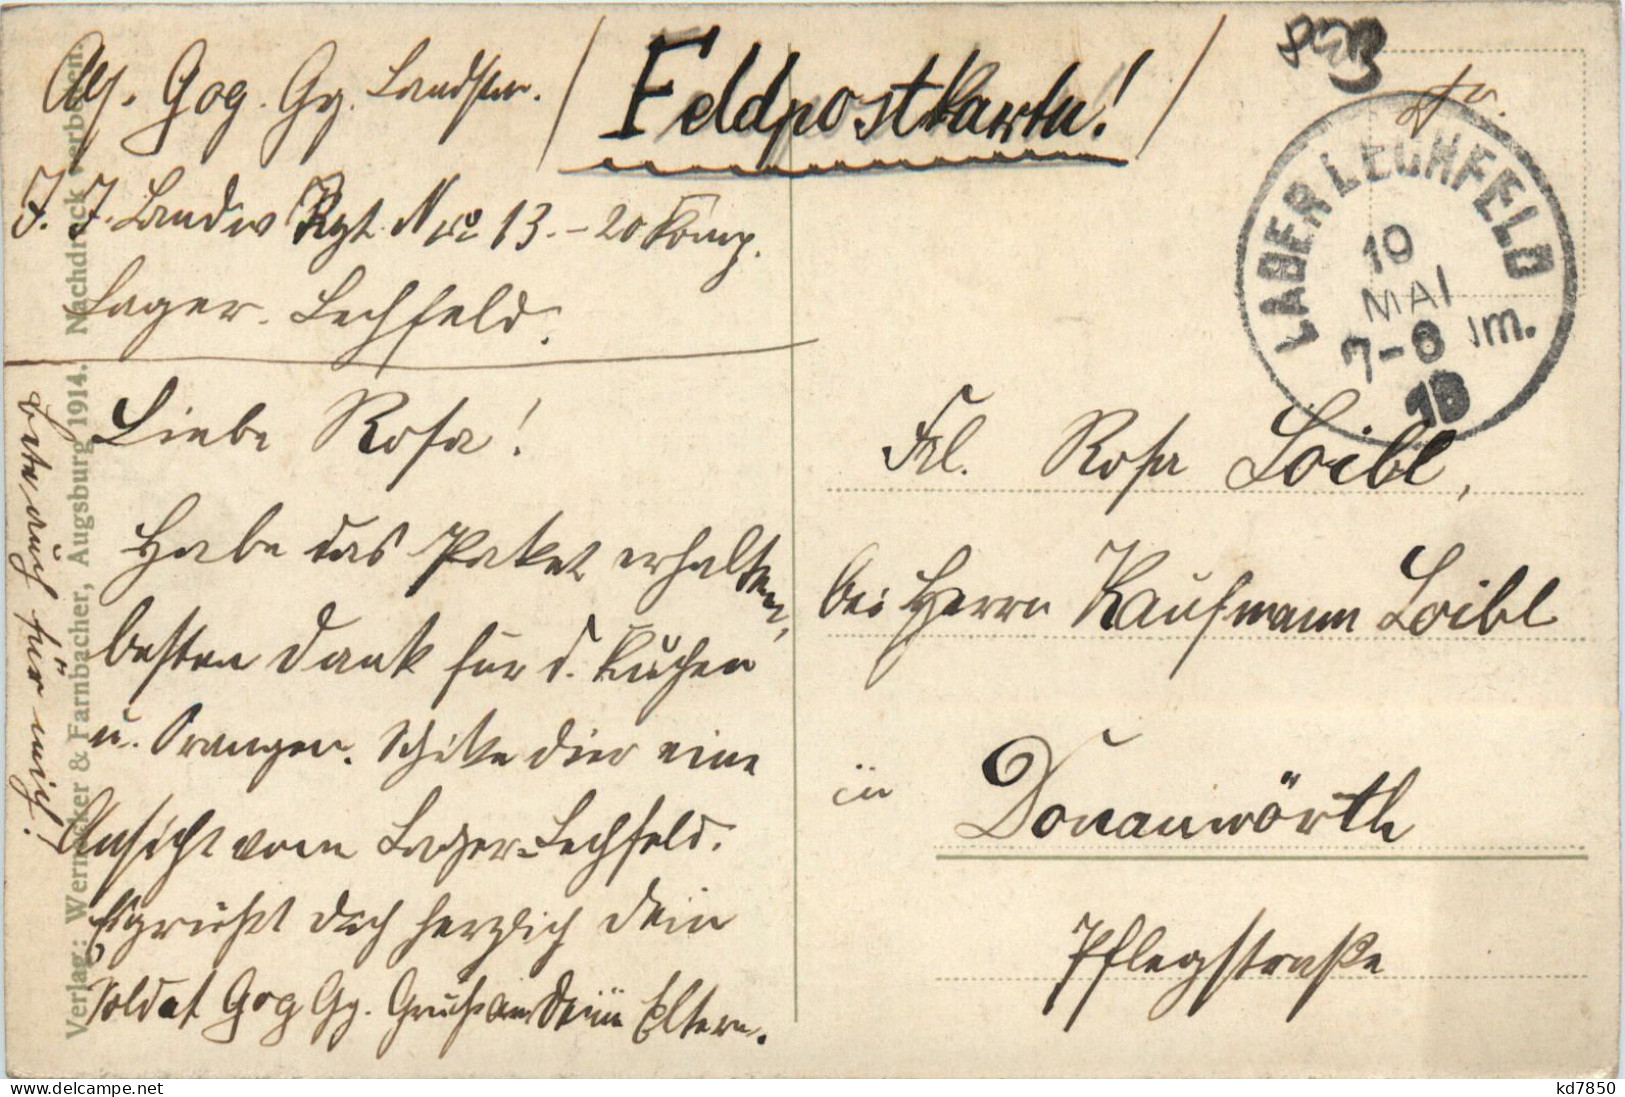 Abs. Gog. Gg. Landstm.
Feldpostkarte!
J. J. Landw Rgt. Nro 13. - 20 Komp.
Lager-Lechfeld.
Liebe Rosa!
Habe das Paket erhalten,
besten Dank für d. Kuchen
u. Orangen. Schicke dir eine
Ansicht vom Lager-Lechfeld.
Es grüßt dich herzlich dein
Soldat Gog Gg. Gruß an Deine Eltern.
bete auch für mich!
LAGER LECHFELD
19
MAI
7-8 Nm.
Frl. Rosa Loibl,
bei Herrn Kaufmann Loibl
in Donauwörth
Pflegstraße
Verlag: Wernecker & Farnbacher, Augsburg 1914. Nachdruck verboten.
kd7850